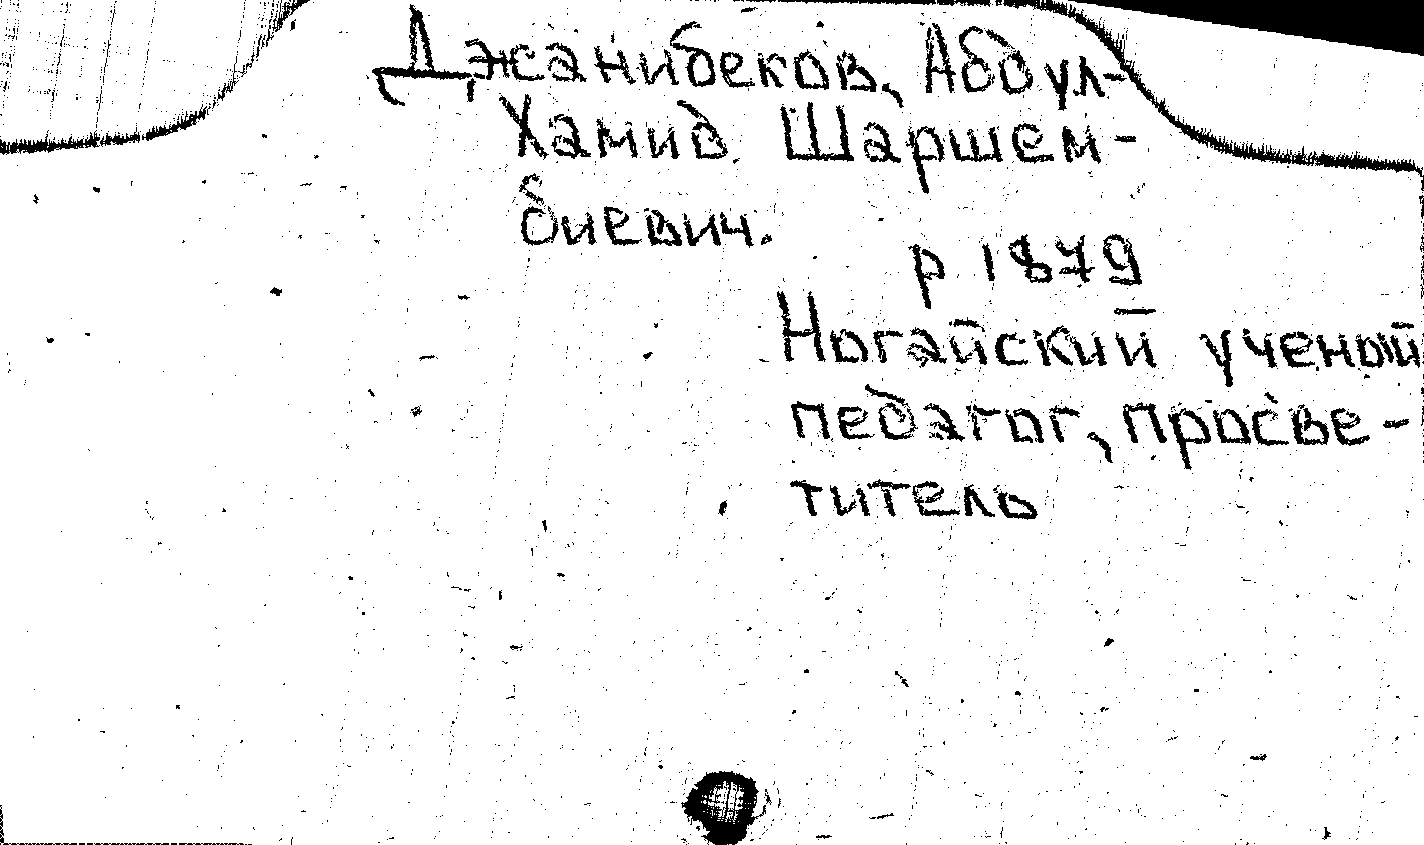 Джанибеков, Абдул-
Хамид Шаршем-
биевич.
р 1879
Ногайский ученый
педагог, просве-
титель